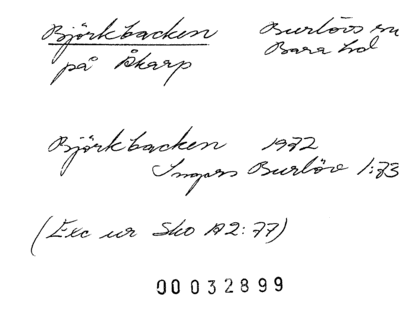 Björkbacken Burlövs sn
på Åkarp Bara hd
Björkbacken 1972
Ingars Burlöv 1:73
(Exc ur Sko A2:77)
00032899